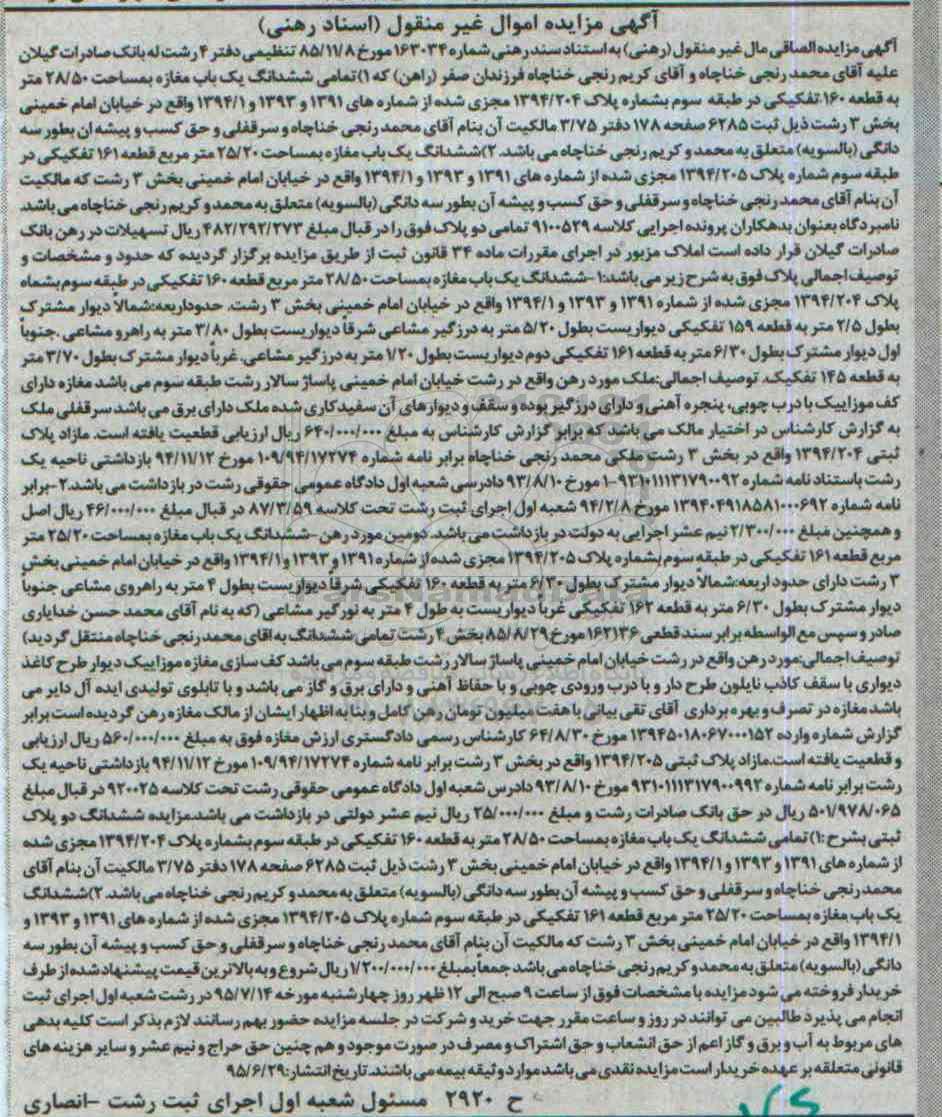 آگهی مزایده اموال غیر منقول (اسناد رهنی)
آگهی مزایده الصاقی مال غیر منقول (رهنی) به استناد سند رهنی شماره ۱۶۳۰۳۴ مورخ ۸۵/۱۱/۸ تنظیمی دفتر ۴ رشت له بانک صادرات گیلان
علیه آقای محمد رنجی خناچاه و آقای کریم رنجی خناچاه فرزندان صفر (راهن) که ۱) تمامی ششدانگ یک باب مغازه بمساحت ۲۸/۵۰ متر
به قطعه ۱۶۰ تفکیکی در طبقه سوم بشماره پلاک ۱۳۹۴/۲۰۴ مجزی شده از شماره های ۱۳۹۱ و ۱۳۹۳ و ۱۳۹۴/۱ واقع در خیابان امام خمینی
بخش ۳ رشت ذیل ثبت ۶۲۸۵ صفحه ۱۷۸ دفتر ۳/۷۵ مالکیت آن بنام آقای محمد رنجی خناچاه و سرقفلی و حق کسب و پیشه ان بطور سه
دانگی (بالسویه) متعلق به محمد و کریم رنجی خناچاه می باشد. ۲) ششدانگ یک باب مغازه بمساحت ۲۵/۲۰ متر مربع قطعه ۱۶۱ تفکیکی در
طبقه سوم شماره پلاک ۱۳۹۴/۲۰۵ مجزی شده از شماره های ۱۳۹۱ و ۱۳۹۳ و ۱۳۹۴/۱ واقع در خیابان امام خمینی بخش ۳ رشت که مالکیت
آن بنام آقای محمد رنجی خناچاه و سرقفلی و حق کسب و پیشه آن بطور سه دانگی (بالسویه) متعلق به محمد و کریم رنجی خناچاه می باشد.
نامبردگاه بعنوان بدهکاران پرونده اجرایی کلاسه ۹۱۰۰۵۲۹ تمامی دو پلاک فوق را در قبال مبلغ ۴۸۲/۲۹۲/۲۷۳ ریال تسهیلات در رهن بانک
صادرات گیلان قرار داده است املاک مزبور در اجرای مقررات ماده ۳۴ قانون ثبت از طریق مزایده برگزار گردیده که حدود و مشخصات و
توصیف اجمالی پلاک فوق به شرح زیر می باشد: ۱-ششدانگ یک باب مغازه بمساحت ۲۸/۵۰ متر مربع قطعه ۱۶۰ تفکیکی در طبقه سوم بشماه
پلاک ۱۳۹۴/۲۰۴ مجزی شده از شماره ۱۳۹۱ و ۱۳۹۳ و ۱۳۹۴/۱ واقع در خیابان امام خمینی بخش ۳ رشت. حدوداربعه: شمالاً دیوار مشترک
بطول ۲/۵ متر به قطعه ۱۵۹ تفکیکی دیواریست بطول ۵/۲۰ متر به درزگیر مشاعی شرقاً دیواریست بطول ۳/۸۰ متر به راهرو مشاعی .جنوباً
اول دیوار مشترک بطول ۶/۳۰ متر به قطعه ۱۶۱ تفکیکی دوم دیواریست بطول ۱/۲۰ متر به درزگیر مشاعی. غرباً دیوار مشترک بطول ۳/۷۰ متر
به قطعه ۱۴۵ تفکیک. توصیف اجمالی: ملک مورد رهن واقع در رشت خیابان امام خمینی پاساژ سالار رشت طبقه سوم می باشد مغازه دارای
کف موزاییک با درب چوبی، پنجره آهنی و دارای درزگیر بوده و سقف و دیوارهای آن سفیدکاری شده ملک دارای برق می باشد سرقفلی ملک
به گزارش کارشناس در اختیار مالک می باشد که برابر گزارش کارشناس به مبلغ ۶۴۰/۰۰۰/۰۰۰ ریال ارزیابی قطعیت یافته است. مازاد پلاک
ثبتی ۱۳۹۴/۲۰۴ واقع در بخش ۳ رشت ملکی محمد رنجی خناچاه برابر نامه شماره ۱۰۹/۹۴/۱۷۲۷۴ مورخ ۹۴/۱۱/۱۲ بازداشتی ناحیه یک
رشت باستناد نامه شماره ۹۳۱۰۱۱۱۳۱۷۹۰۰۹۲-۱ مورخ ۹۳/۸/۱۰ دادرسی شعبه اول دادگاه عمومی حقوقی رشت در بازداشت می باشد. ۲-برابر
نامه شماره ۱۳۹۴۰۴۹۱۸۵۸۱۰۰۰۶۹۲ مورخ ۹۴/۲/۸ شعبه اول اجرای ثبت رشت تحت کلاسه ۸۷/۳/۵۹ در قبال مبلغ ۴۶/۰۰۰/۰۰۰ ریال اصل
و همچنین مبلغ ۲/۳۰۰/۰۰۰ نیم عشر اجرایی به دولت در بازداشت می باشد. دومین مورد رهن-ششدانگ یک باب مغازه بمساحت ۲۵/۲۰ متر
مربع قطعه ۱۶۱ تفکیکی در طبقه سوم بشماره پلاک ۱۳۹۴/۲۰۵ مجزی شده از شماره ۱۳۹۱ و ۱۳۹۳ و ۱۳۹۴/۱ واقع در خیابان امام خمینی بخش
۳ رشت دارای حدود اربعه: شمالاً دیوار مشترک بطول ۶/۳۰ متر به قطعه ۱۶۰ تفکیکی شرقاً دیواریست بطول ۴ متر به راهروی مشاعی جنوباً
دیوار مشترک بطول ۶/۳۰ متر به قطعه ۱۶۲ تفکیکی غرباً دیواریست به طول ۴ متر به نورگیر مشاعی (که به نام آقای محمد حسن خدایاری
صادر و سپس مع الواسطه برابر سند قطعی ۱۶۲۱۳۶ مورخ ۸۵/۸/۲۹ بخش ۴ رشت تمامی ششدانگ به اقای محمد رنجی خناچاه منتقل گردید)
توصیف اجمالی: مورد رهن واقع در رشت خیابان امام خمینی پاساژ سالار رشت طبقه سوم می باشد کف سازی مغازه موزاییک دیوار طرح کاغذ
دیواری با سقف کاذب نایلون طرح دار و با درب ورودی چوبی و با حفاظ آهنی و دارای برق و گاز می باشد و با تابلوی تولیدی ایده آل دایر می
باشد مغازه در تصرف و بهره برداری آقای تقی بیانی با هفت میلیون تومان رهن کامل و بنا به اظهار ایشان از مالک مغازه رهن گردیده است برابر
گزارش شماره وارده ۱۳۹۴۵۰۱۸۰۶۷۰۰۰۱۵۲ مورخ ۶۴/۸/۳۰ کارشناس رسمی دادگستری ارزش مغازه فوق به مبلغ ۵۶۰/۰۰۰/۰۰۰ ریال ارزیابی
و قطعیت یافته است. مازاد پلاک ثبتی ۱۳۹۴/۲۰۵ واقع در بخش ۳ رشت برابر نامه شماره ۱۰۹/۹۴/۱۷۲۷۴ مورخ ۹۴/۱۱/۱۲ بازداشتی ناحیه یک
رشت برابر نامه شماره ۹۳۱۰۱۱۱۳۱۷۹۰۰۹۹۲ مورخ ۹۳/۸/۱۰ دادرس شعبه اول دادگاه عمومی حقوقی رشت تحت کلاسه ۹۲۰۰۲۵ در قبال مبلغ
۵۰۱/۹۷۸/۰۶۵ ریال در حق بانک صادرات رشت و مبلغ ۲۵/۰۰۰/۰۰۰ ریال نیم عشر دولتی در بازداشت می باشد. مزایده ششدانگ دو پلاک
ثبتی بشرح: ۱) تمامی ششدانگ یک باب مغازه بمساحت ۲۸/۵۰ متر به قطعه ۱۶۰ تفکیکی در طبقه سوم بشماره پلاک ۱۳۹۴/۲۰۴ مجزی شده
از شماره های ۱۳۹۱ و ۱۳۹۳ و ۱۳۹۴/۱ واقع در خیابان امام خمینی بخش ۳ رشت ذیل ثبت ۶۲۸۵ صفحه ۱۷۸ دفتر ۳/۷۵ مالکیت آن بنام آقای
محمد رنجی خناچاه و سرقفلی و حق کسب و پیشه آن بطور سه دانگی (بالسویه) متعلق به محمد و کریم رنجی خناچاه می باشد. ۲) ششدانگ
یک باب مغازه بمساحت ۲۵/۲۰ متر مربع قطعه ۱۶۱ تفکیکی در طبقه سوم شماره پلاک ۱۳۹۴/۲۰۵ مجزی شده از شماره های ۱۳۹۱ و ۱۳۹۳ و
۱۳۹۴/۱ واقع در خیابان امام خمینی بخش ۳ رشت که مالکیت آن بنام آقای محمد رنجی خناچاه و سرقفلی و حق کسب و پیشه آن بطور سه
دانگی (بالسویه) متعلق به محمد و کریم رنجی خناچاه می باشد جمعاً بمبلغ ۱/۲۰۰/۰۰۰/۰۰۰ ریال شروع و به بالاترین قیمت پیشنهاد شده از طرف
خریدار فروخته می شود مزایده با مشخصات فوق از ساعت ۹ صبح الی ۱۲ ظهر روز چهارشنبه مورخه ۹۵/۷/۱۴ در رشت شعبه اول اجرای ثبت
انجام می پذیرد طالبین می توانند در روز و ساعت مقرر جهت خرید و شرکت در جلسه مزایده حضور بهم رسانند لازم بذکر است کلیه بدهی
های مربوط به آب و برق و گاز اعم از حق انشعاب و حق اشتراک و مصرف در صورت موجود و هم چنین حق حراج و نیم عشر و سایر هزینه های
قانونی متعلقه بر عهده خریدار است مزایده نقدی می باشد موارد وثیقه بیمه می باشند. تاریخ انتشار: ۹۵/۶/۲۹
ح ۲۹۲۰ مسئول شعبه اول اجرای ثبت رشت -انصاری